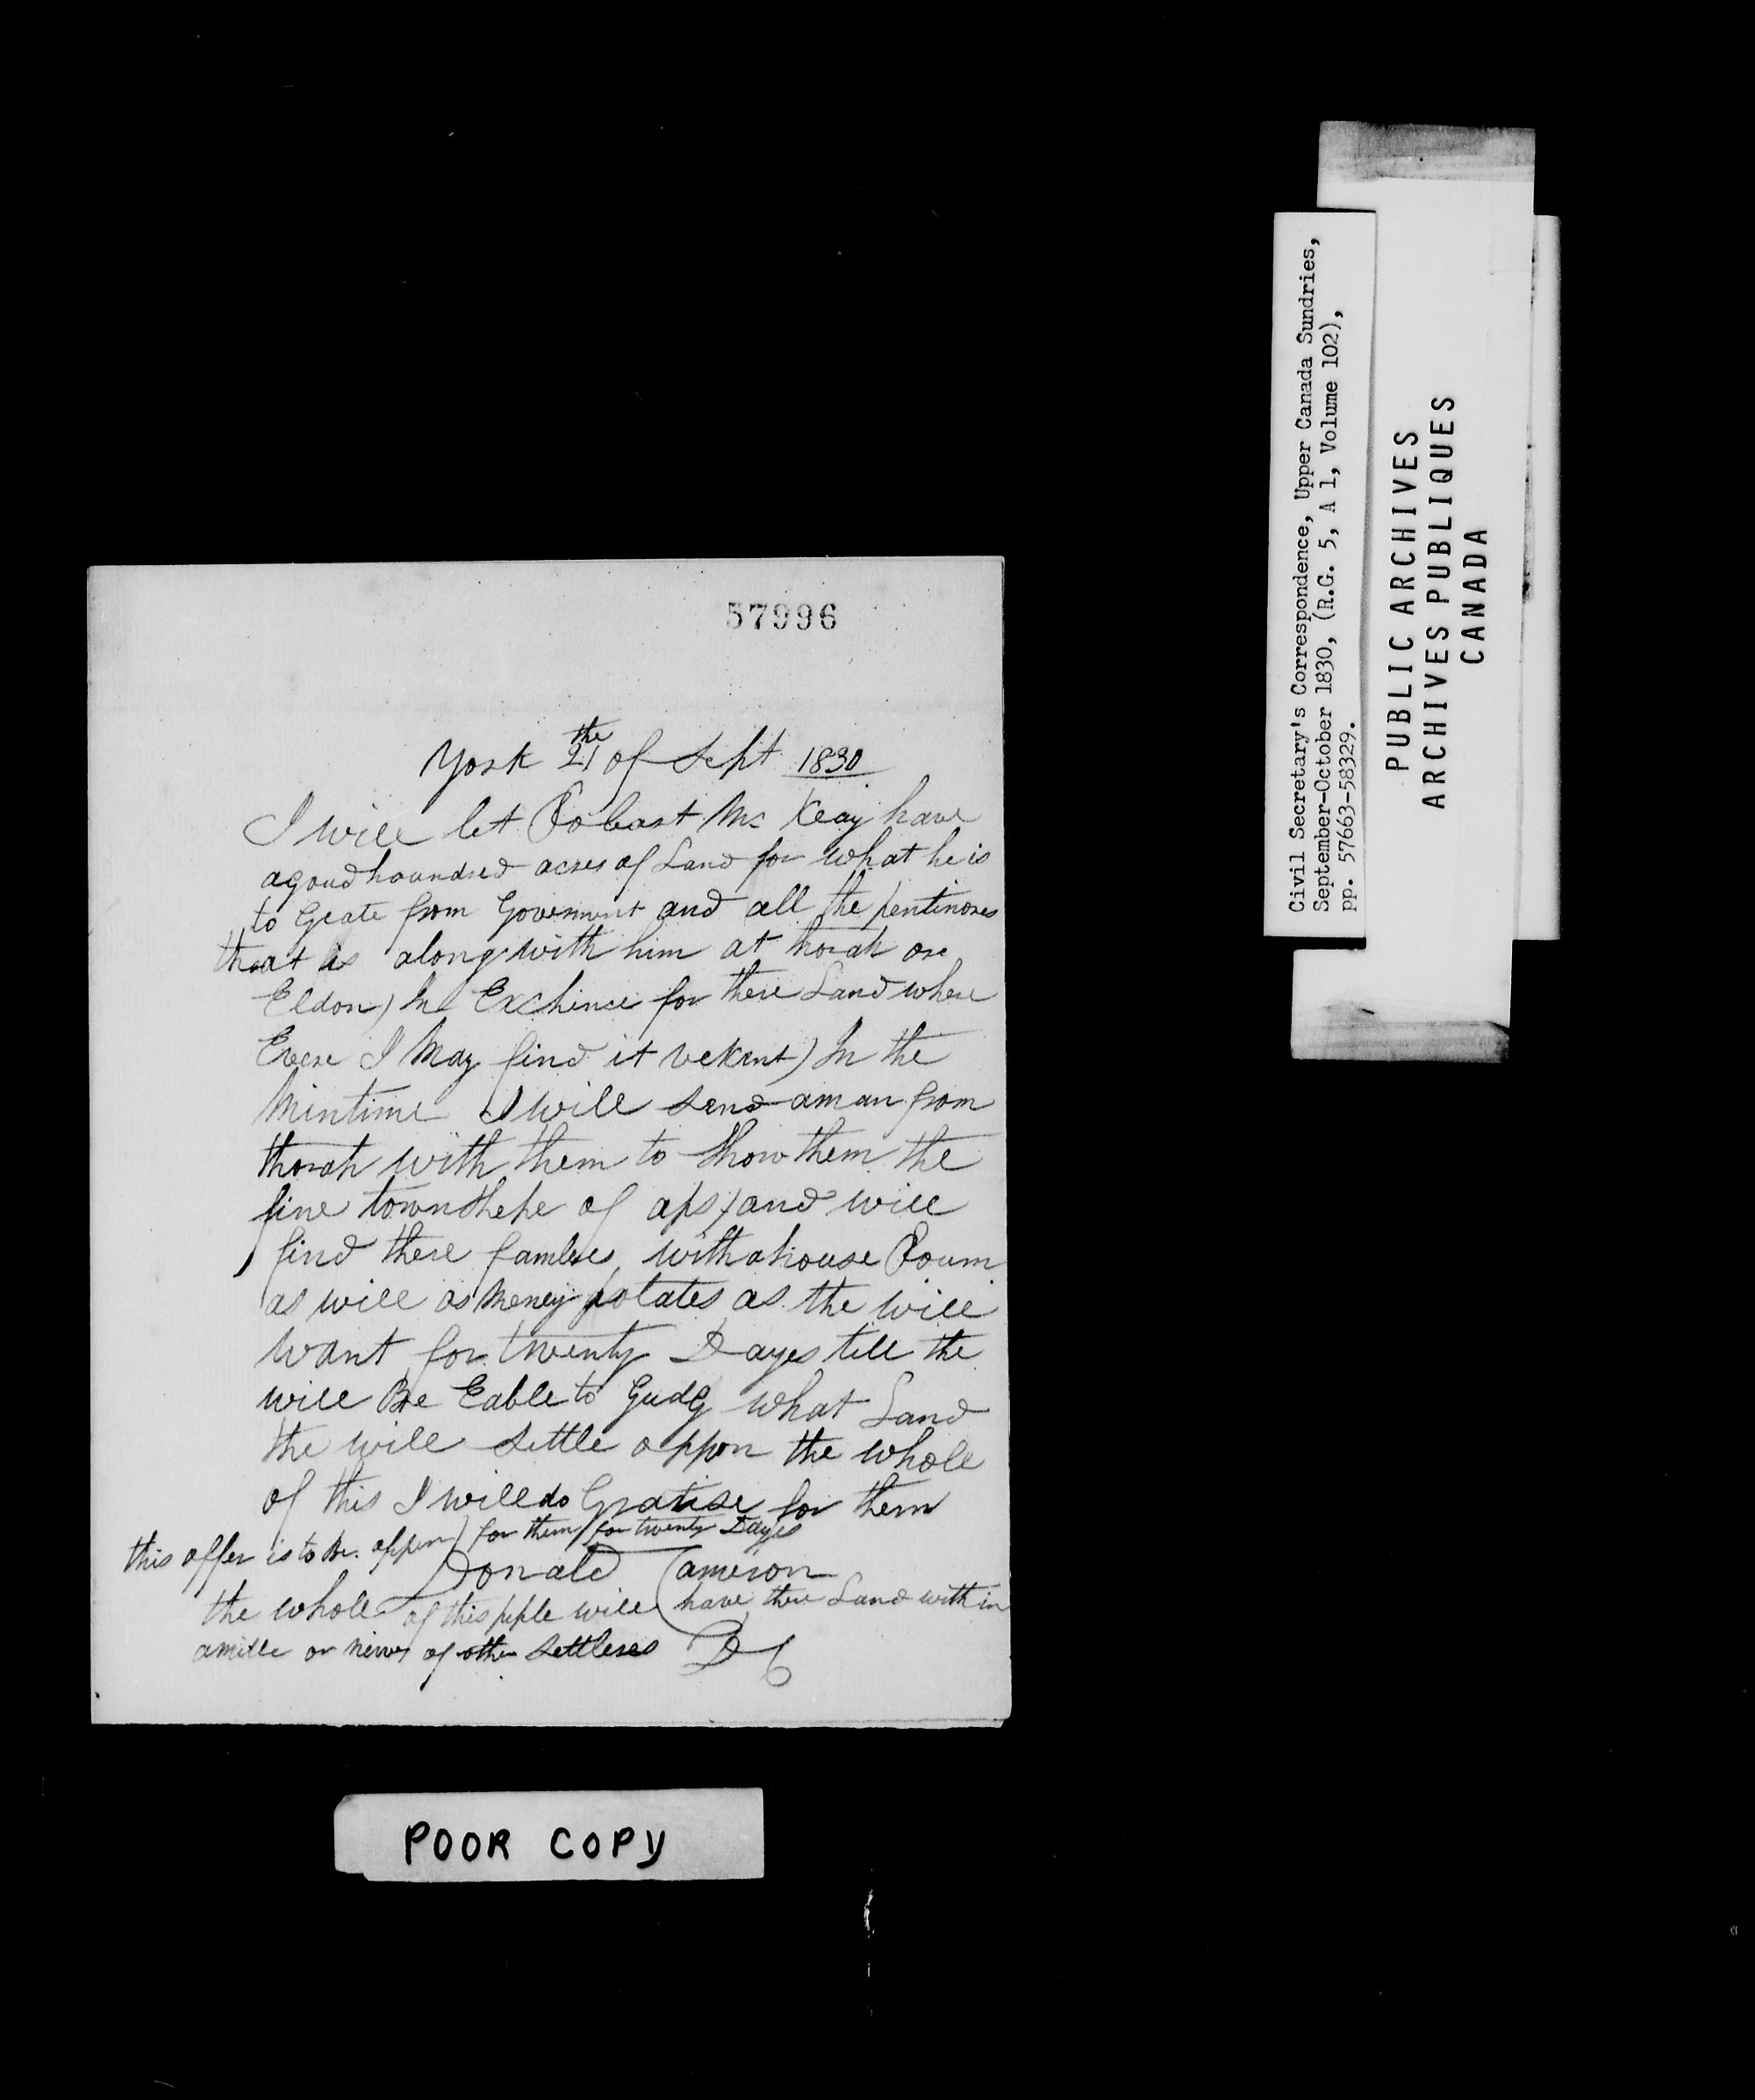 57996
York 21 the of Sept 1830
I will let Robart Mc Keay have
a goud houndred acres of Land for what he is
to Geate from Goverment and all the pentinores
that is along with him at thorah ore
Eldon) In Exchince for there Land where
Evere I May find it vekent) In the
Mintime I will send a man from
thorah with them to Show them the
fine townshepe of aps) and will
find there famlies with a house Roum
as will as Meney potates as the will
want for twenty Dayes till the
will Be Eable to Gudg what Land
the will settle oppon the whole
of this I will do Gratise for them
this offer is to Be oppen) for them for twenty Dayes
Donald Cameron
the whole of this peple will have there Land with in
a mille or of other Settleres DC
POOR COPY
Civil Secretary's Correspondence, Upper Canada Sundries,
September-October 1830, (R.G. 5, A 1, Volume 102),
pp. 57663-58329.
PUBLIC ARCHIVES
ARCHIVES PUBLIQUES
CANADA